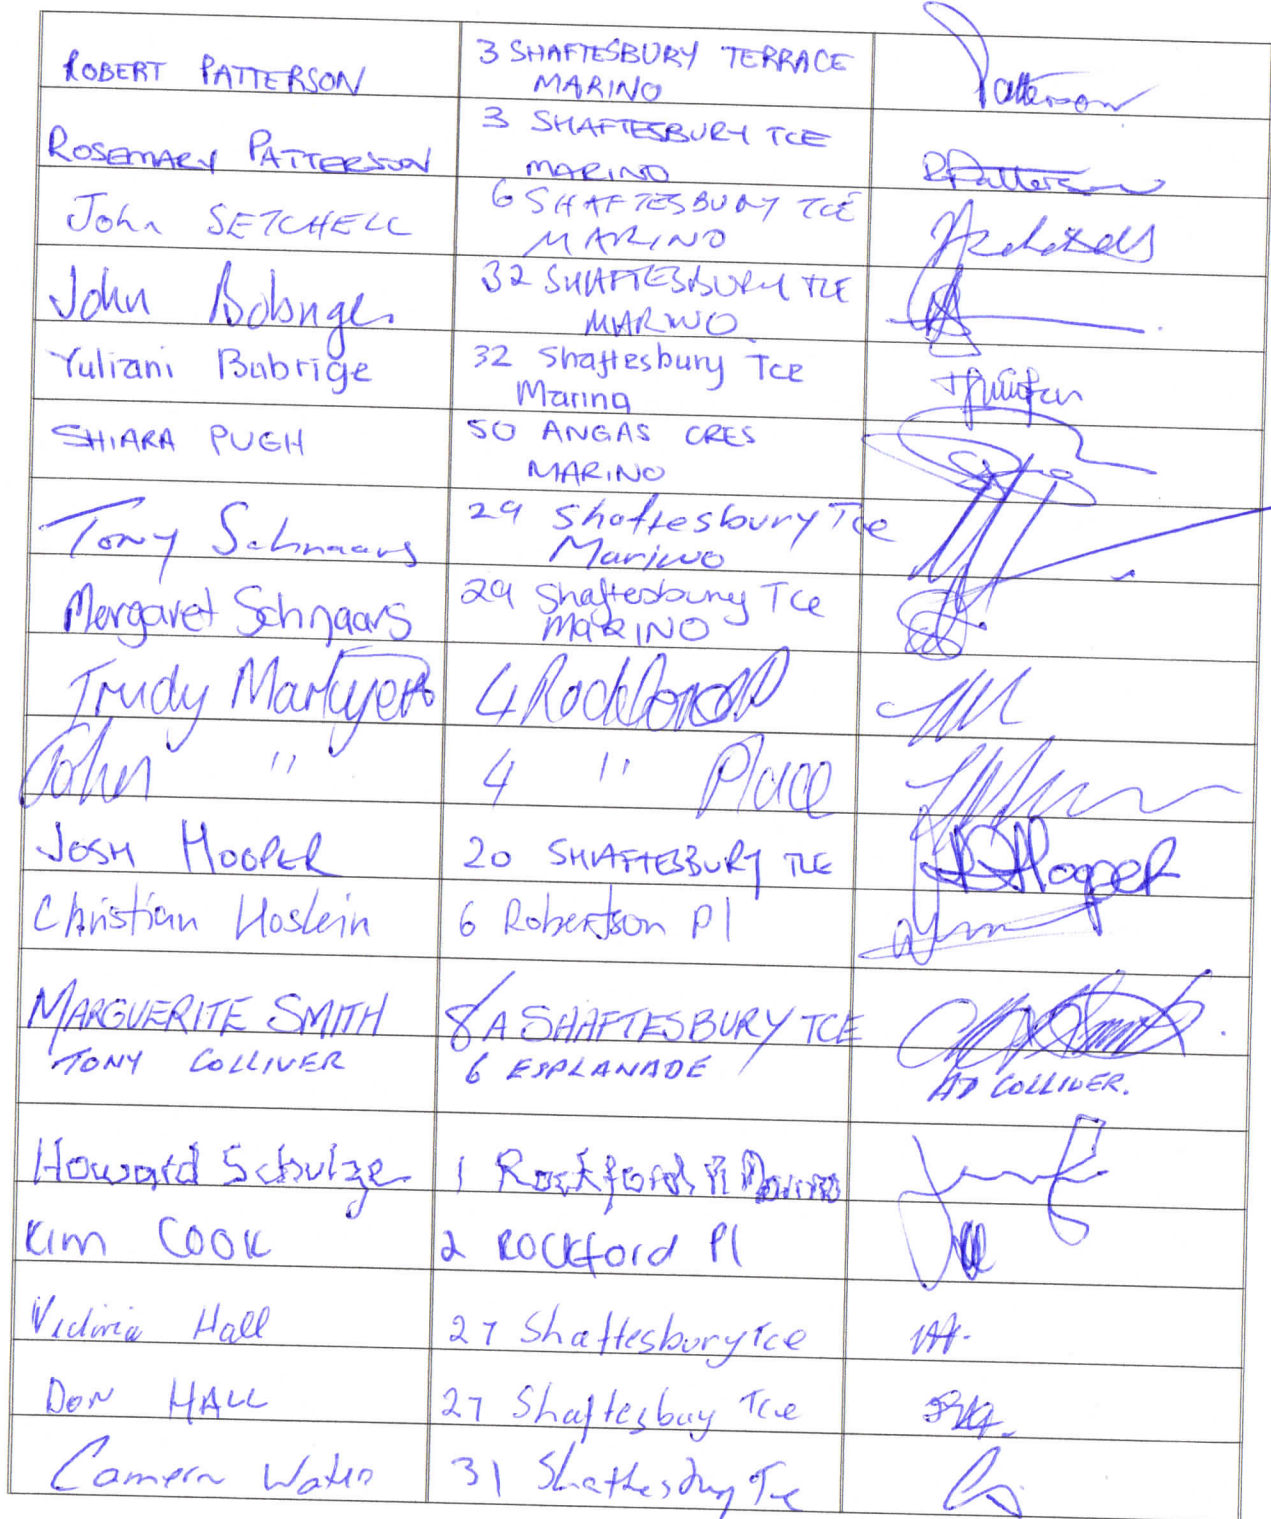 ROBERT PATTERSON 3 SHAFTESBURY TERRACE
MARINO Patterson
ROSEMARY PATTERSON 3 SHAFTESBURY TCE
MARINO RPatterson
John SETCHELL 6 SHAFTESBURY TCE
MARINO
John 32 SHAFTESBURY TCE
MARINO
Yuliani Bubrige 32 Shaftesbury Tce
Marino
SHIARA PUGH 50 ANGAS CRES
MARINO
Tony Schnaars 29 Shaftesbury Tce
Marino
Margaret Schnaars 29 Shaftesbury Tce
MARINO
Trudy 4 Rockford
John " 4 " Place
JOSH HOOPER 20 SHAFTESBURY TCE Hooper
Christian Hoslein 6 Robertson Pl
MARGUERITE SMITH 8A SHAFTESBURY TCE
TONY COLLIVER 6 ESPLANADE AJ COLLIVER.
Howard Schulze 1 Rockford Pl Marino
Kim COOK 2 ROCKford Pl
Victoria Hall 27 Shaftesbury Tce
DON HALL 27 Shaftesbuy Tce
31 Shaftesbury Tce